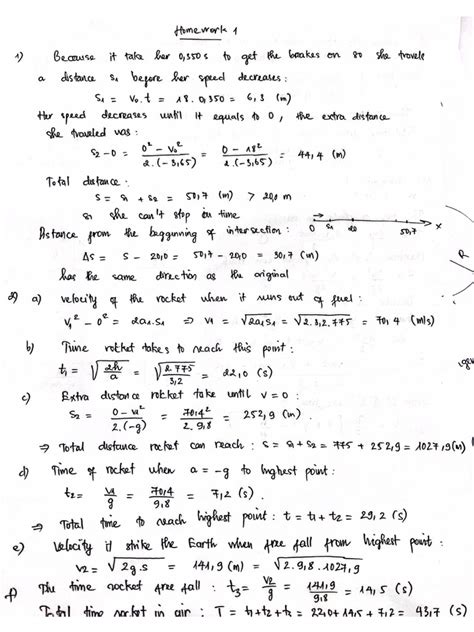 Homework 1
1) Because it take her 0,350 s to get the brakes on so she travels
a distance s1 before her speed decreases :
S1 = V0.t = 18. 0,350 = 6,3 (m)
Her speed decreases until it equals to 0, the extra distance
she traveled was :
S2-0 = (0² - V0²)/(2.(-3,65)) = (0 - 18²)/(2.(-3,65)) = 44,4 (m)
Total distance :
S = S1 + S2 = 50,7 (m) > 20,0 m
so she can't stop on time
0 S1 20 50,7 x
Distance from the beggunning of intersection :
ΔS = S - 20,0 = 50,7 - 20,0 = 30,7 (m)
has the same direction as the original
R
2) a) Velocity of the rocket when it runs out of fuel :
V1² - 0² = 2a1.S1 ⇒ V1 = √2a1S1 = √2.3,2.775 = 70,4 (m/s)
b) Time rocket takes to reach this point :
t1 = √(2h/a) = √(2.775/3,2) = 22,0 (s)
c) Extra distance rocket take until v = 0 :
S2 = (0 - V1²)/(2.(-g)) = 70,4²/(2.9,8) = 252,9 (m).
⇒ Total distance rocket can reach : S = S1 + S2 = 775 + 252,9 = 1027,9(m)
d) Time of rocket when a = -g to highest point :
t2 = V1/g = 70,4/9,8 = 7,2 (s)
⇒ Total time to reach highest point : t = t1 + t2 = 29,2 (s)
e) Velocity it strike the Earth when free fall from highest point :
V2 = √2g.s = 141,9 (m) = √2.9,8.1027,9
f) The time rocket free fall : t3 = V2/g = 141,9/9,8 = 14,5 (s)
Total time rocket in air : T = t1+t2+t3 = 22,0+14,5+7,2 = 43,7 (s)